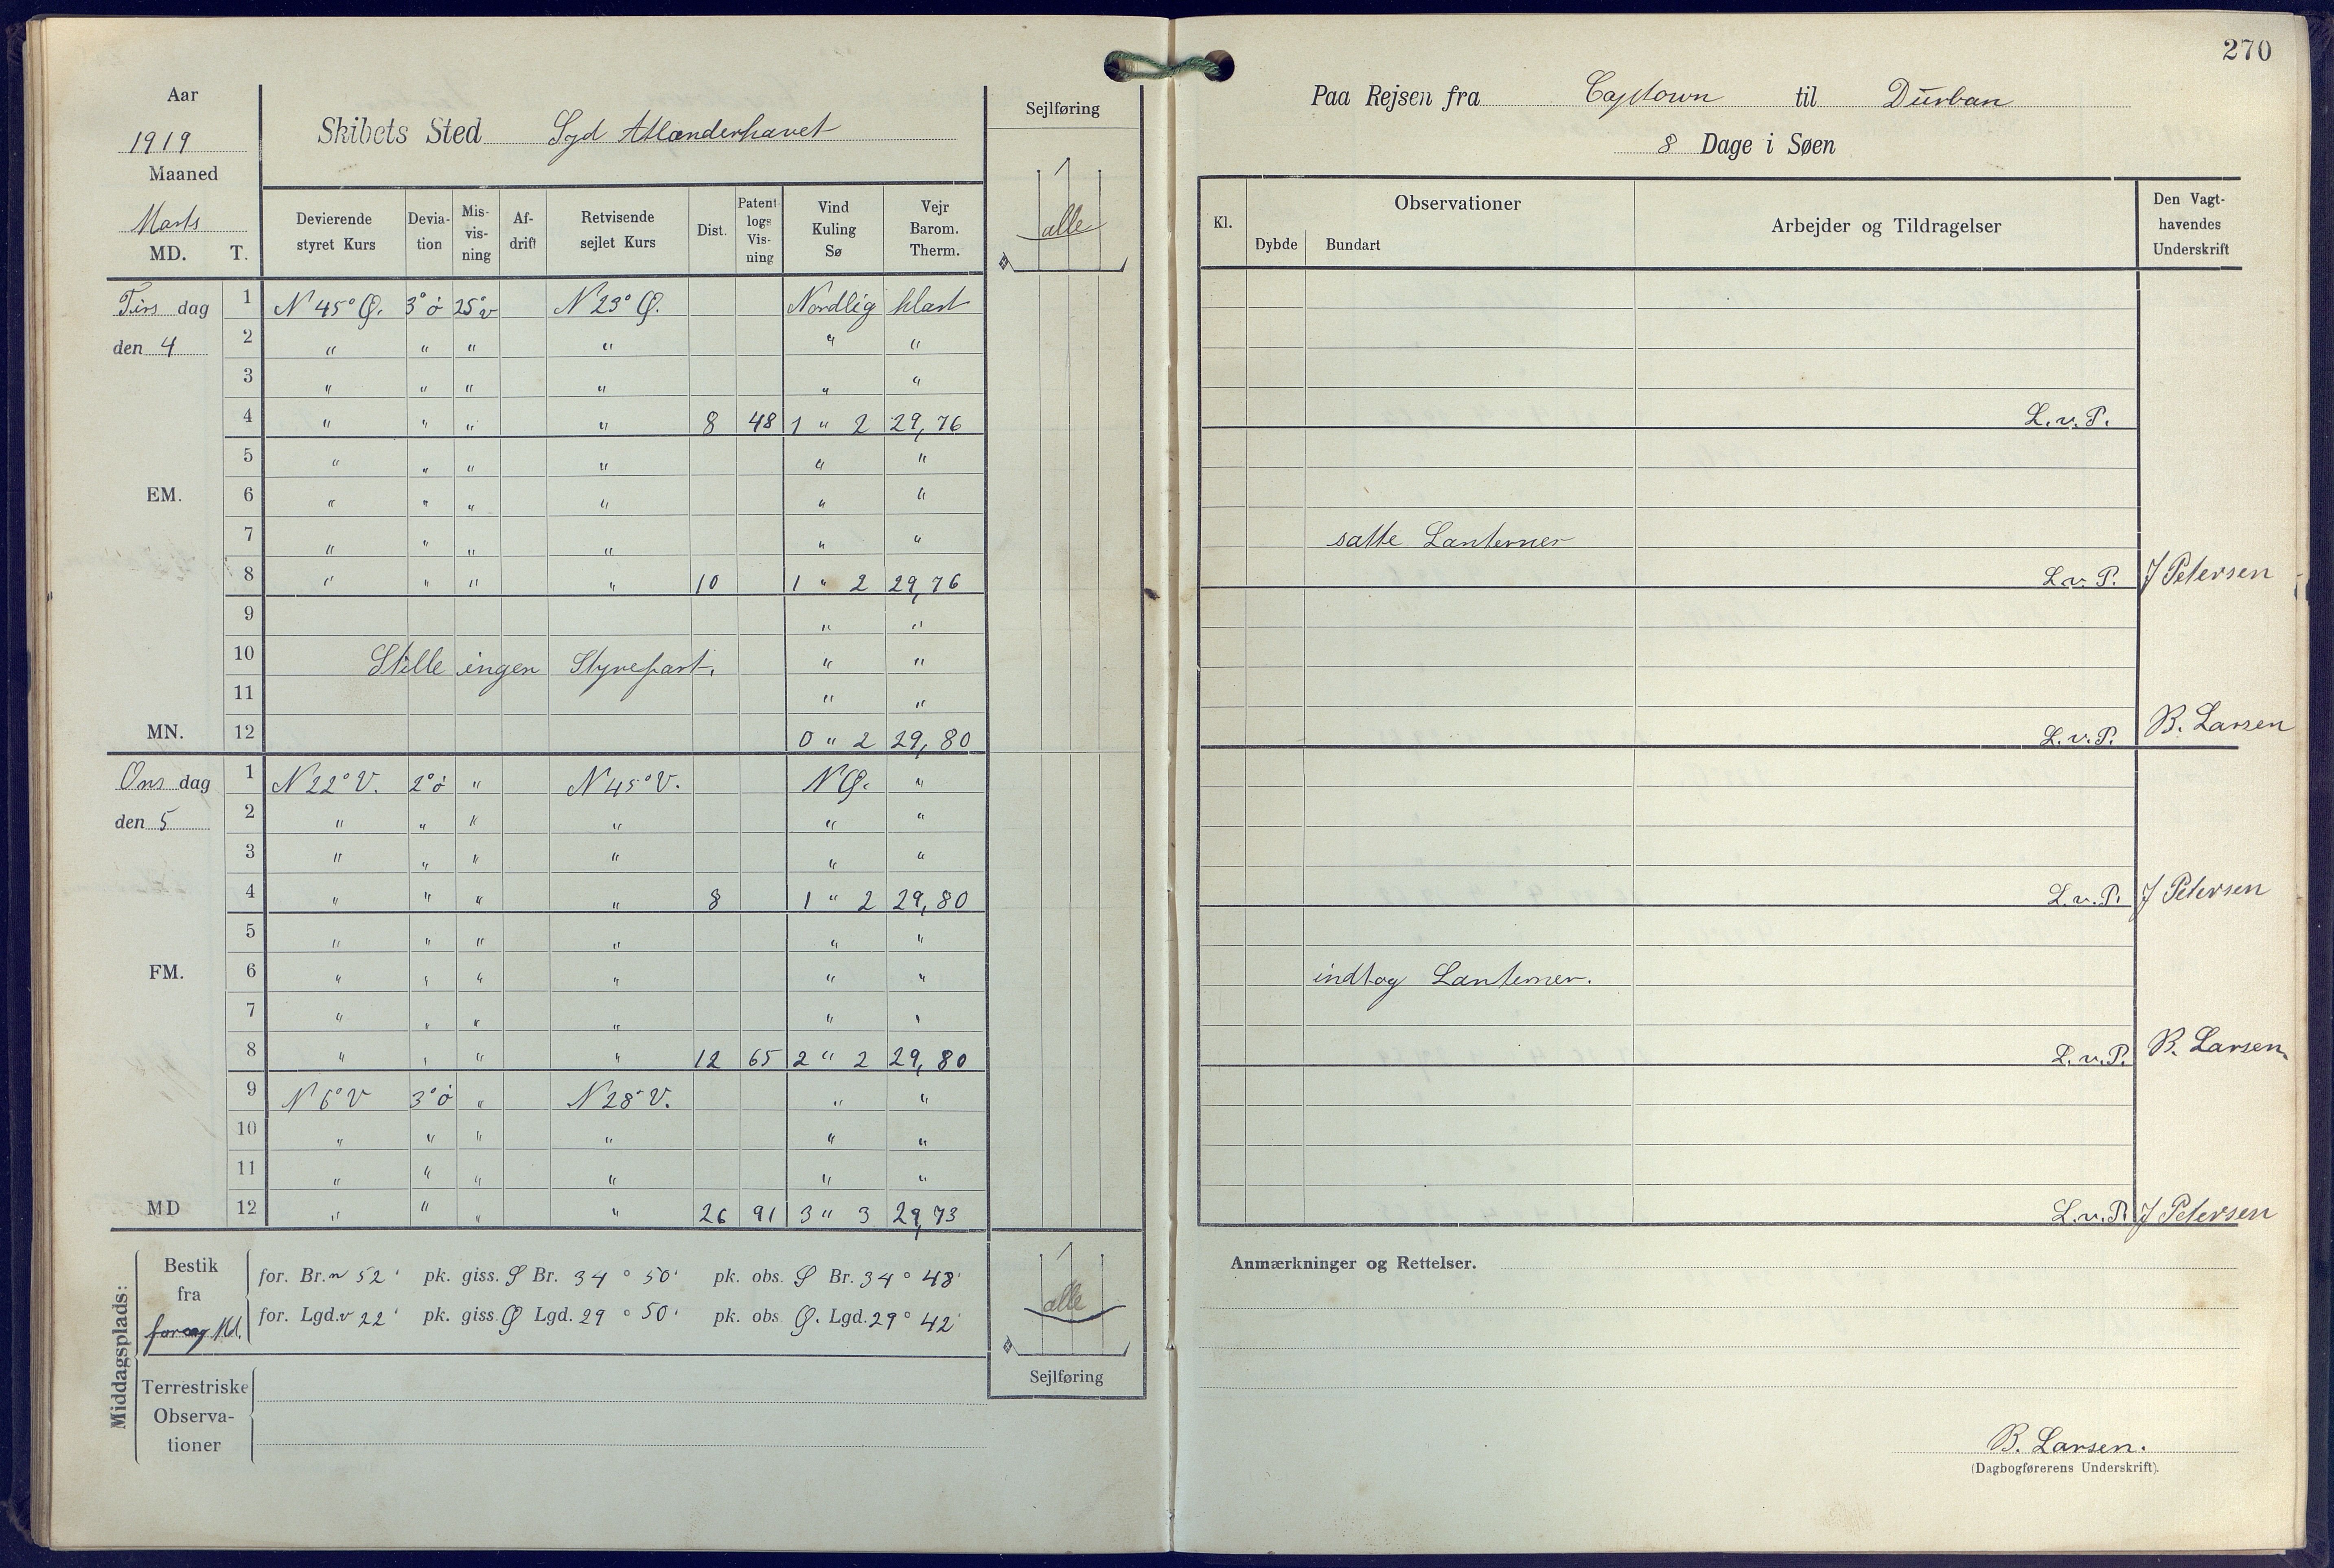 270
Aar
1919
Maaned
Marts
MD. T.
Skibets Sted Syd Atlanderhavet
Sejlføring
alle
Paa Rejsen fra Captown til Durban
8 Dage i Søen
Devierende styret Kurs
Devia-tion
Mis-vis-ning
Af-drift
Retvisende sejlet Kurs
Dist.
Patent logs Vis-ning
Vind Kuling Sø
Vejr Barom. Therm.
Kl.
Observationer
Dybde Bundart
Arbejder og Tildragelser
Den Vagt-havendes Underskrift
Tirs dag 1 N 45° Ø. 3° ö 25° v N 23° Ø. Nordlig klart
den 4 2 " " " " " "
3 " " " " " "
4 " " " " 8 48 1 " 2 29,76 L.v.P.
5 " " " " " "
EM. 6 " " " " " "
7 " " " " " " satte Lanterner
8 " " " " 10 1 " 2 29,76 L.v.P. J Petersen
9 " "
10 Stille ingen Styrefart. " "
11 " "
MN. 12 0 " 2 29,80 L.v.P. B. Larsen
Ons dag 1 N 22° V. 2° ö " N 45° V. NØ. "
den 5 2 " " " " " "
3 " " " " " "
4 " " " " 8 1 " 2 29,80 L.v.P. J Petersen
5 " " " " " "
FM. 6 " " " " " " indtog Lanterner.
7 " " " " " "
8 " " " " 12 65 2 " 2 29,80 L.v.P. B. Larsen.
9 N 6° V 3° ö " N 28° V. " "
10 " " " " " "
11 " " " " " "
MD 12 " " " " 26 91 3 " 3 29,73 L.v.P. J Petersen
Middagsplads:
Bestik fra
for. Br. n 52' pk. giss. S Br. 34° 50' pk. obs. S Br. 34° 48'
for. Lgd. v 22' pk. giss. Ø Lgd. 29° 50' pk. obs. Ø. Lgd. 29° 42'
alle
Sejlføring
Terrestriske
Observa-
tioner
Anmærkninger og Rettelser.
B. Larsen.
(Dagbogførerens Underskrift).